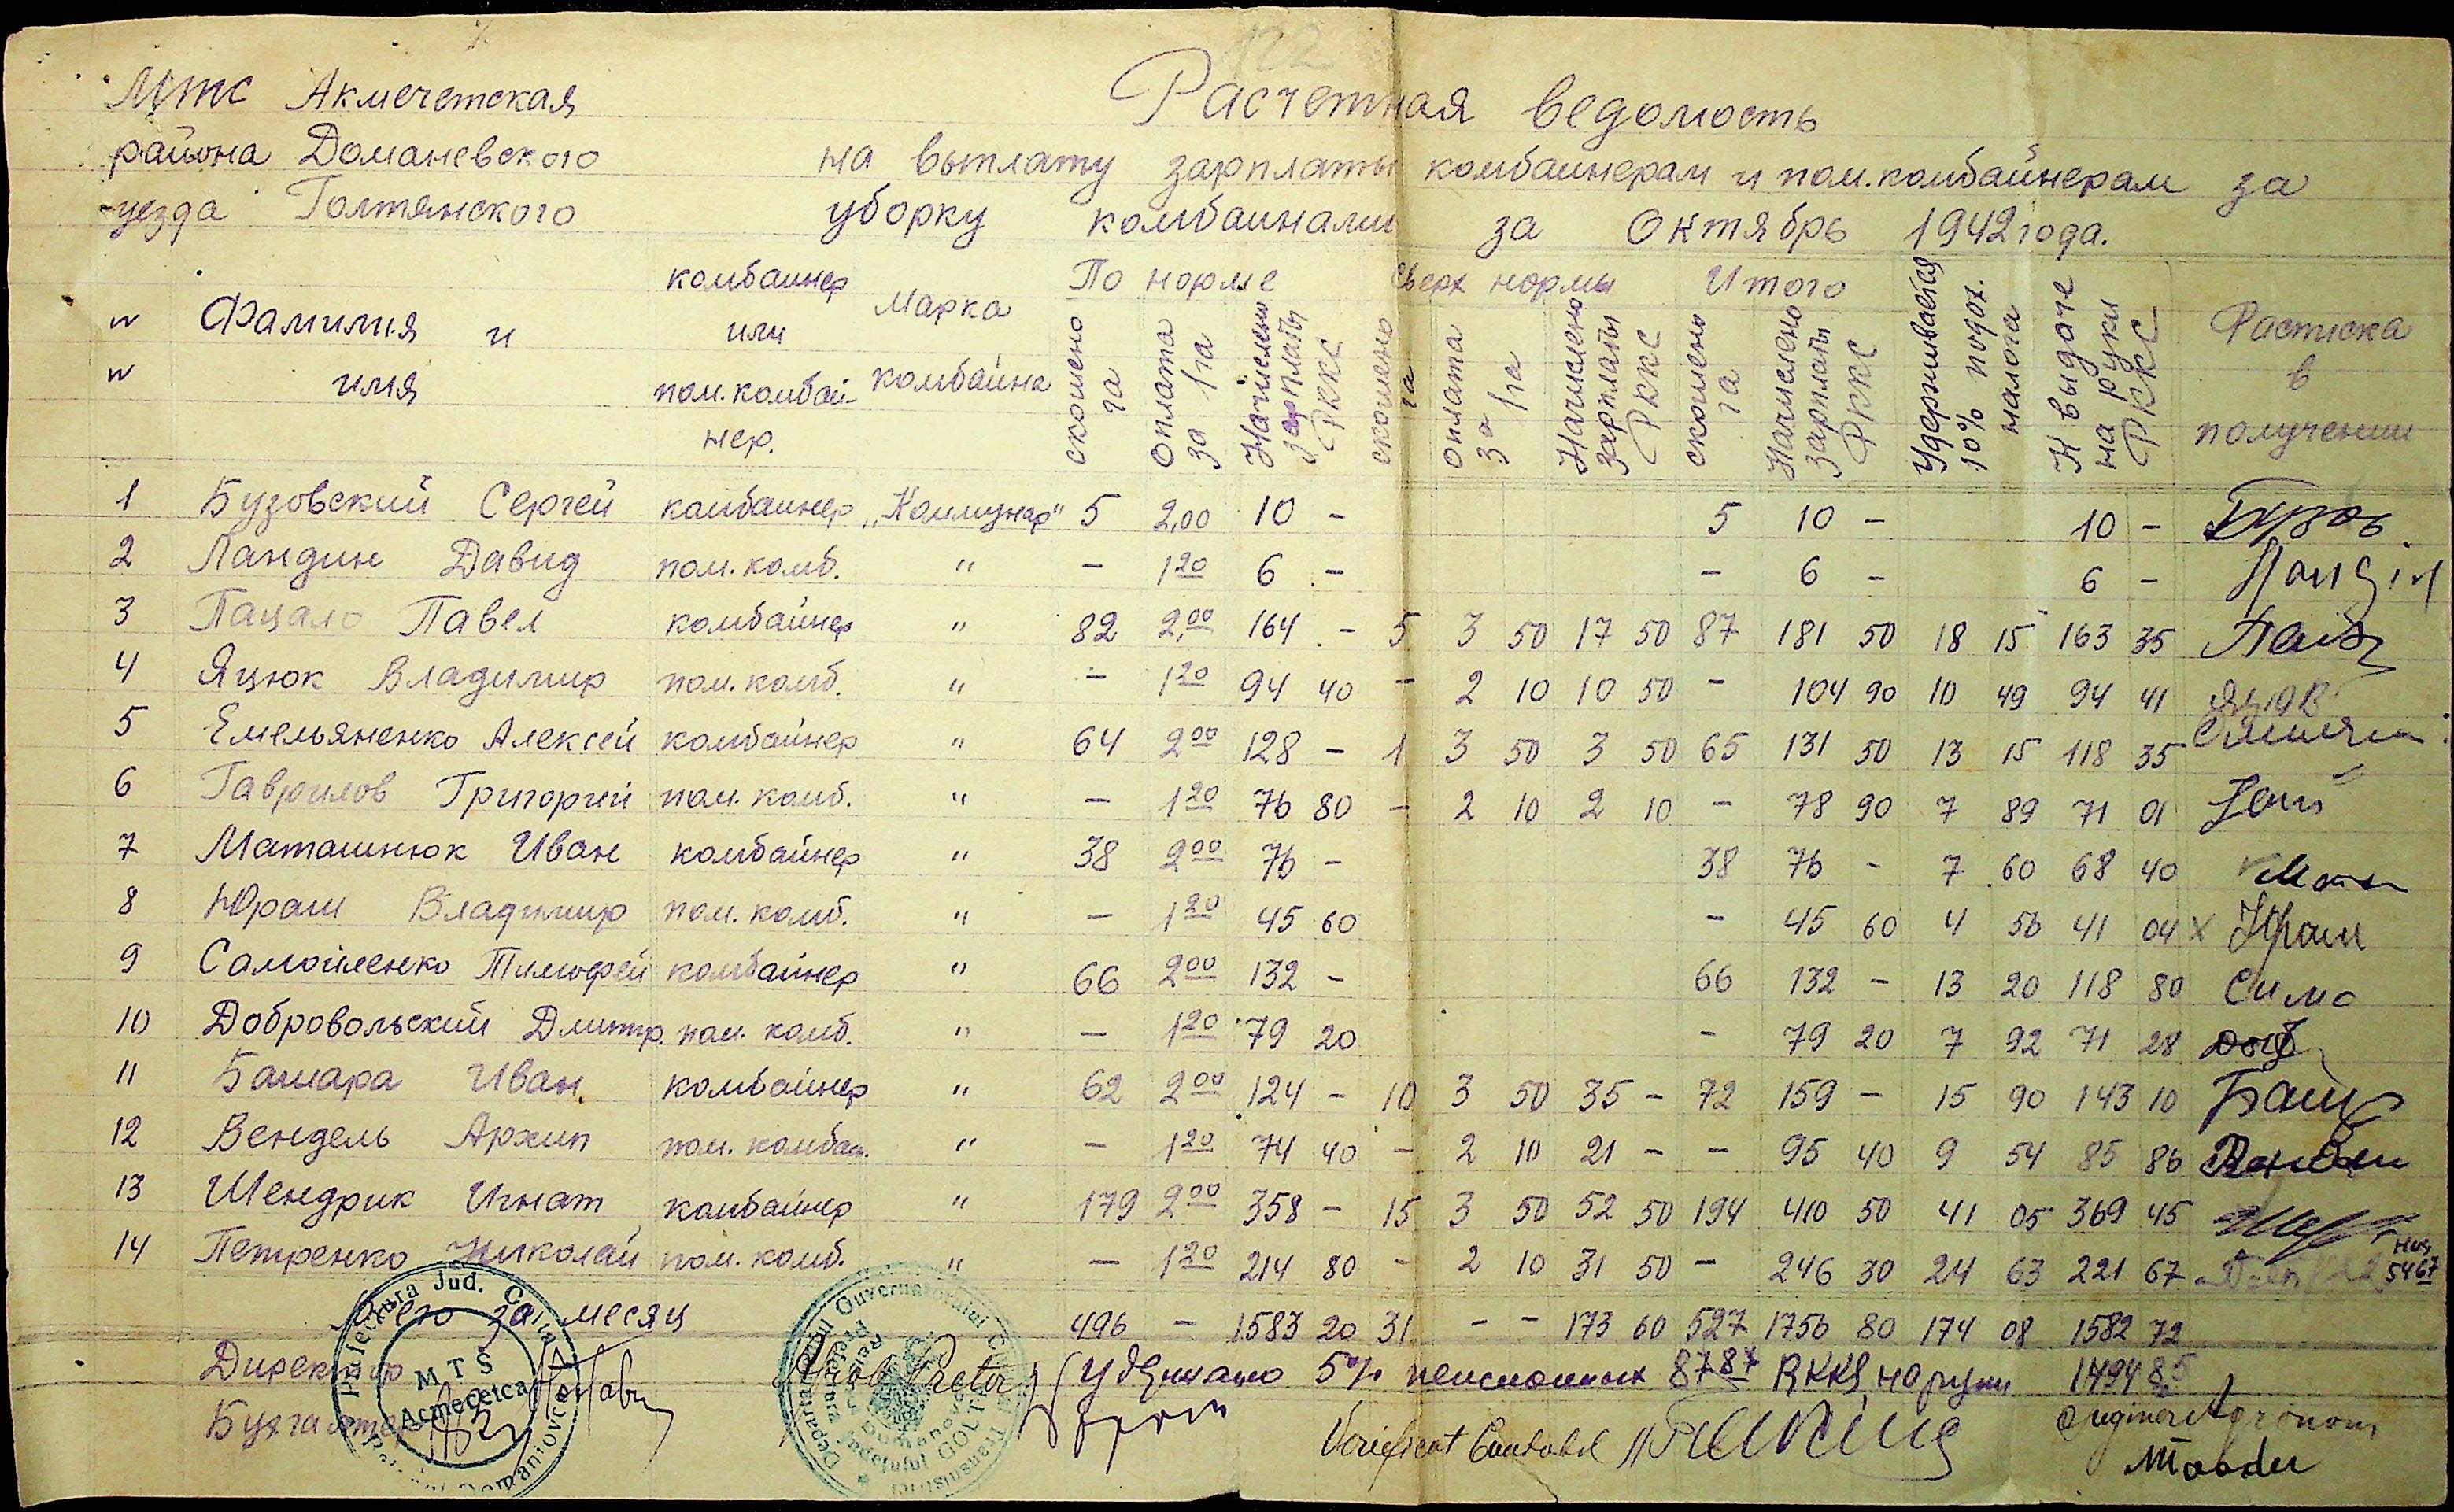 122
МТС Акмечетская
Расчетная ведомость
района Доманевского
на выплату зарплаты комбаинерам и пом. комбайнерам за
уезда Голтянского
уборку комбаинами за Октябрь 1942 года.
№ № Фамилия и имя комбаинер или пом. комбай-нер. Марка комбайна По норме Сверх нормы Итого Удерживается 10% подох. налога К выдаче на руки РККС Расписка в получении
скошено га Оплата за 1 га Начислено зарплаты РККС скошено га Оплата за 1 га Начислено зарплаты РККС скошено га Начислено зарплаты РККС
1 Бузовский Сергей комбаинер „Коммунар" 5 2,00 10 - 5 10 - 10 -
2 Ландин Давид пом. комб. " - 1 20 6 - - 6 - 6 -
3 Пацало Павел комбайнер " 82 2,00 164 - 5 3 50 17 50 87 181 50 18 15 163 35
4 Яцюк Владимир пом. комб. " - 1 20 94 40 - 2 10 10 50 - 104 90 10 49 94 41
5 Емельяненко Алексей комбойнер " 64 2 00 128 - 1 3 50 3 50 65 131 50 13 15 118 35
6 Гаврилов Григорий пом. комб. " - 1 20 76 80 - 2 10 2 10 - 78 90 7 89 71 01
7 Маташнюк Иван комбайнер " 38 2 00 76 - 38 76 - 7 60 68 40
8 Юраш Владимир пом. комб. " - 1 20 45 60 - 45 60 4 56 41 04 х Юраш
9 Самойленко Тимофей комбайнер " 66 2 00 132 - 66 132 - 13 20 118 80
10 Добровольский Дмитр. пом. комб. " - 1 20 79 20 - 79 20 7 92 71 28
11 Башара Иван. комбайнер " 62 2 00 124 - 10 3 50 35 - 72 159 - 15 90 143 10
12 Вендель Архип пом. комбаи. " - 1 20 74 40 - 2 10 21 - - 95 40 9 54 85 86
13 Шендрик Игнат комбайнер " 179 2 00 358 - 15 3 50 52 50 194 410 50 41 05 369 45
14 Петренко Николай пом. комб. " - 1 20 214 80 - 2 10 31 50 - 246 30 24 63 221 67
Всего за месяц 496 - 1583 20 31 - - 173 60 527 1756 80 174 08 1582 72
Директор
Удержано 5% пенсионных 87 87 RKKS на руки 1494 85
Бухгалтер
Prefectura Jud. Golta
MTS
Acmecetca
Domaniovca
Departamentul Guvernatorului Civil al Transnistriei
Prefectura Judeţului GOLTA
Pretor
Verificat Contabil
Inginer Agronom